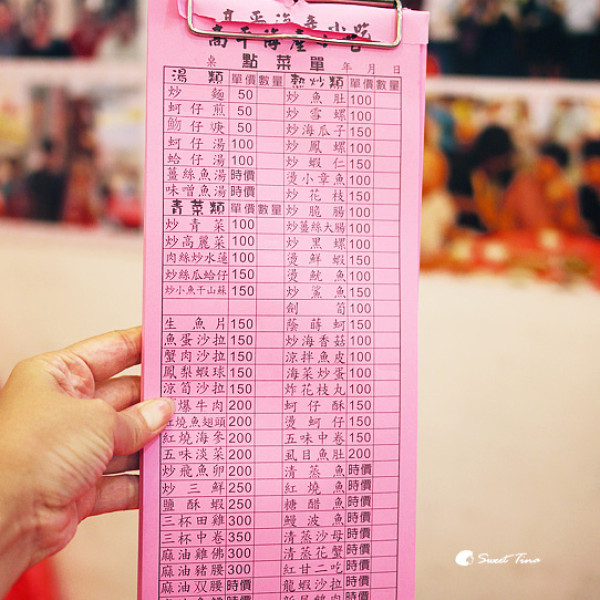 高平海產小吃
高平海產小吃
桌 點菜單 年 月 日
湯類 單價 數量 熱炒類 單價 數量
炒麵 50 炒魚肚 100
蚵仔煎 50 炒雪螺 100
魩仔 50 炒海瓜子 150
蚵仔湯 100 炒鳳螺 100
蛤仔湯 100 炒蝦仁 150
薑絲魚湯 時價 燙小章魚 100
味噌魚湯 時價 炒花枝 150
青菜類 單價 數量 炒脆腸 100
炒青菜 100 炒薑絲大腸 100
炒高麗菜 100 炒黑螺 100
肉絲炒水蓮 100 燙鮮蝦 150
炒絲瓜蛤仔 150 燙魷魚 100
炒小魚干山蘇 150 炒鯊魚 150
劍筍 100
生魚片 150 蔭蒔蚵 150
魚蛋沙拉 150 炒海香菇 100
蟹肉沙拉 150 涼拌魚皮 100
鳳梨蝦球 150 海菜炒蛋 100
涼筍沙拉 150 炸花枝丸 100
爆牛肉 200 蚵仔酥 150
紅燒魚翅頭 200 燙蚵仔 100
紅燒海參 200 五味中卷 150
五味淡菜 200 虱目魚肚 200
炒飛魚卵 200 清蒸魚 時價
炒三鮮 250 紅燒魚 時價
鹽酥蝦 250 糖醋魚 時價
三杯田雞 300 鰻波魚 時價
三杯中卷 350 清蒸沙母 時價
麻油雞佛 300 清蒸花蟹 時價
麻油豬腰 300 紅甘二吃 時價
麻油双腰 時價 龍蝦沙拉 時價
時價
Sweet Tina